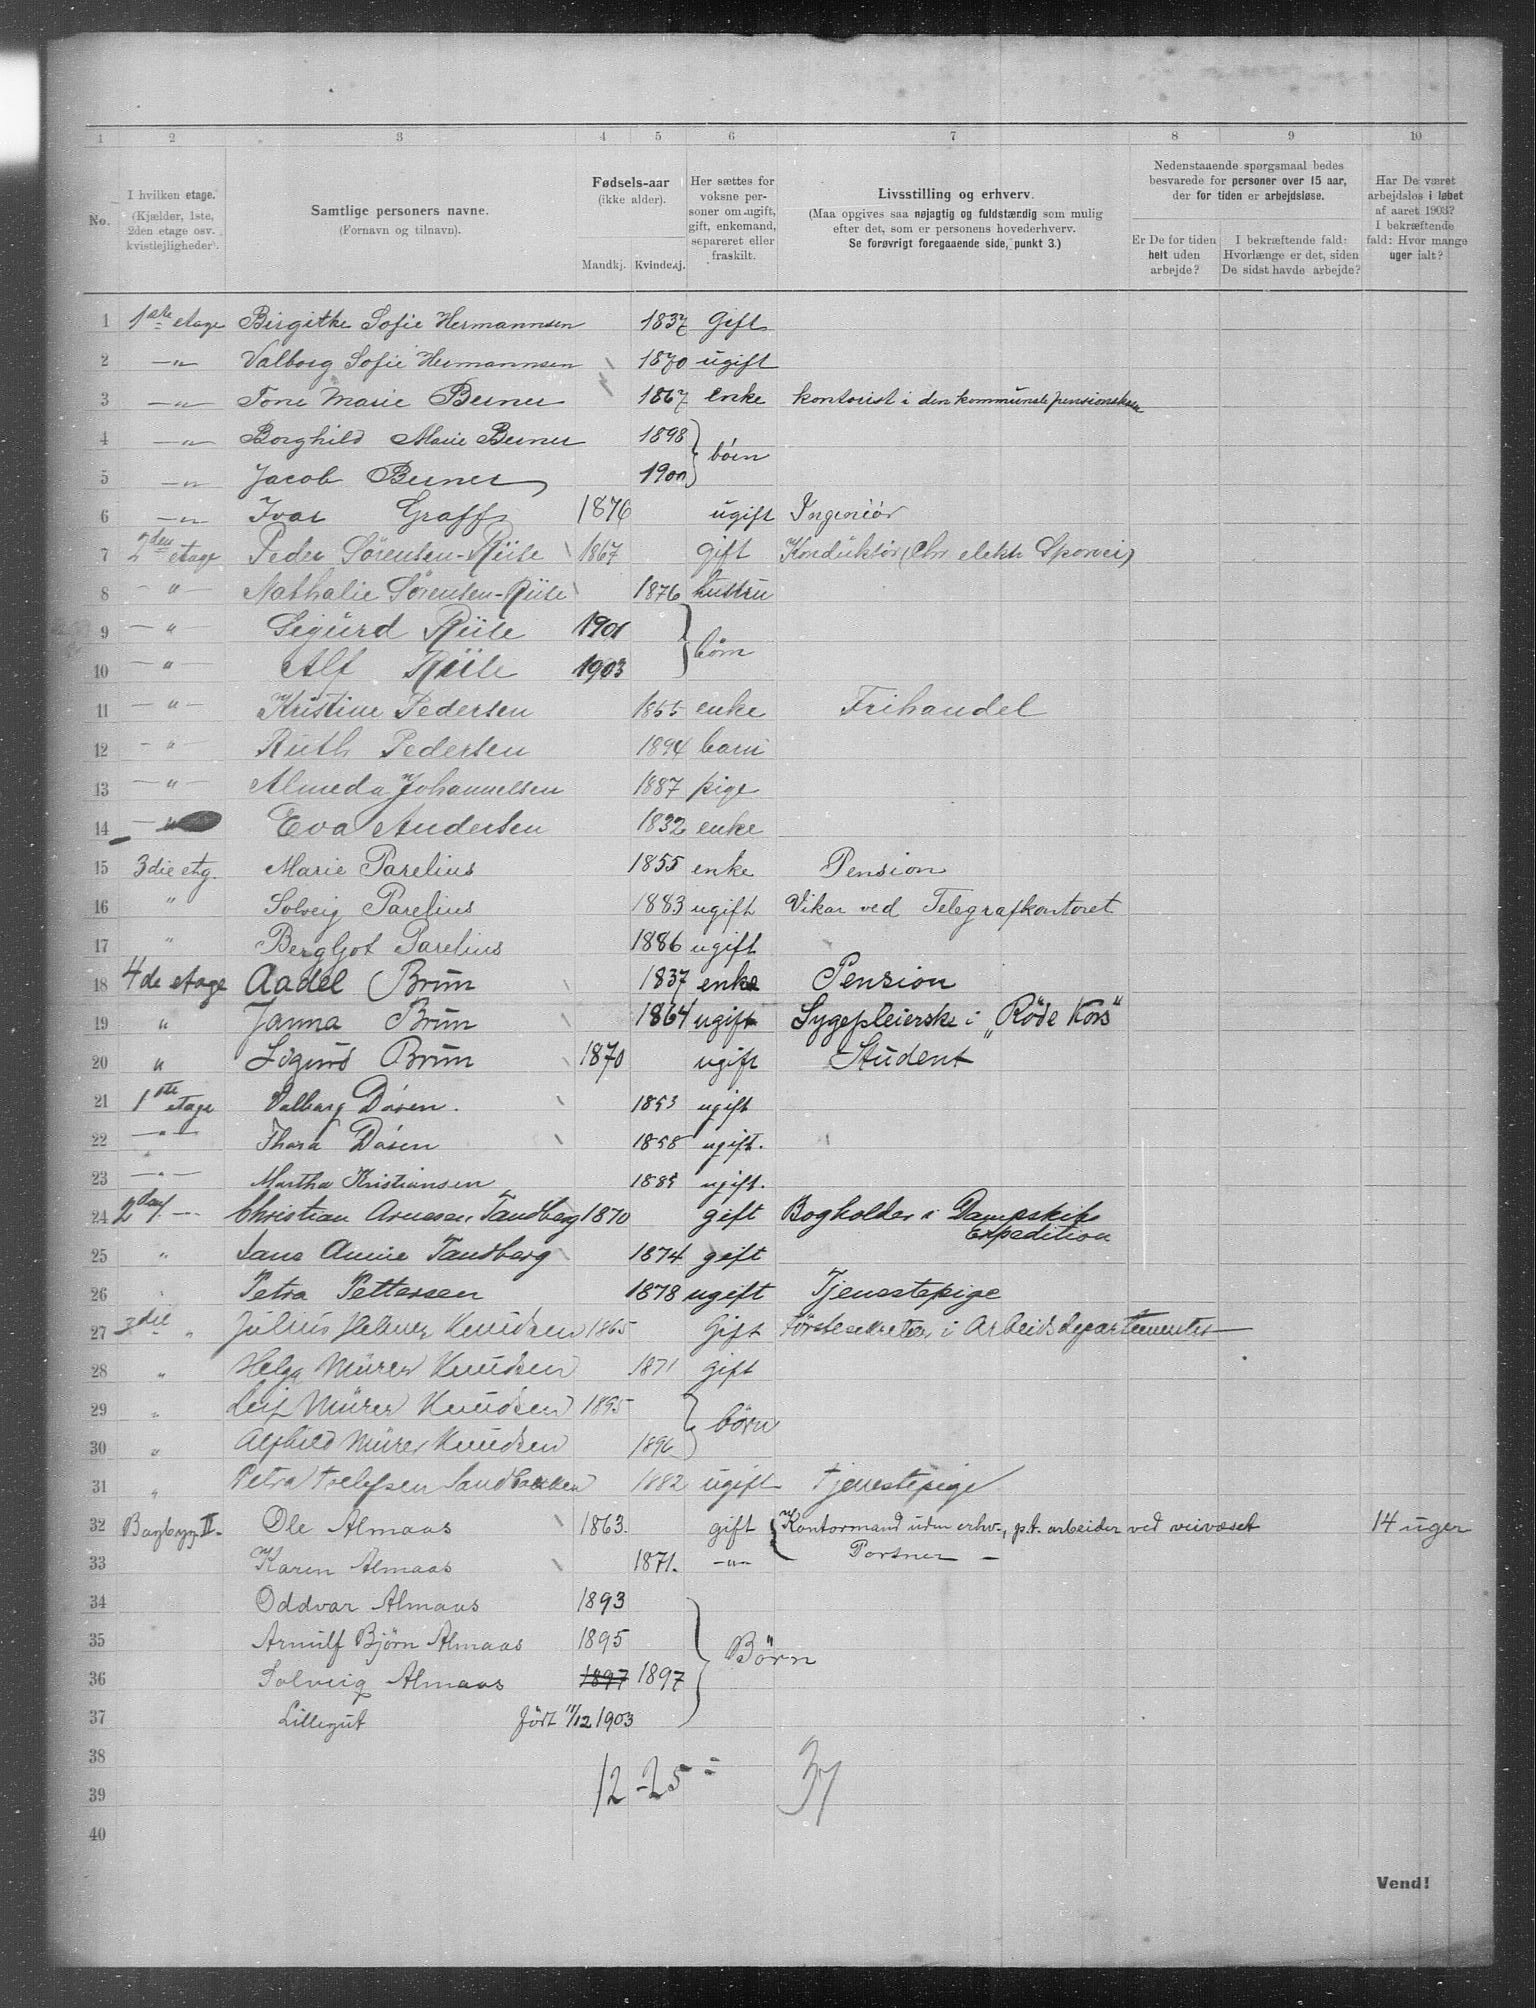 1 2 3 4 5 6 7 8 9 10
No.
I hvilken etage.
(Kjælder, 1ste,
2den etage osv.
kvistlejligheder).
Samtlige personers navne.
(Fornavn og tilnavn).
Fødsels-aar
(ikke alder).
Mandkj. Kvindekj.
Her sættes for
voksne per-
soner om ugift,
gift, enkemand,
separeret eller
fraskilt.
Livsstilling og erhverv.
(Maa opgives saa nøjagtig og fuldstærdig som mulig
efter det, som er personens hovederhverv.
Se forøvrigt foregaaende side, punkt 3.)
Nedenstaaende spørgsmaal bedes
besvarede for personer over 15 aar,
der for tiden er arbejdsløse.
Er De for tiden
helt uden
arbejde?
I bekræftende fald:
Hvorlænge er det, siden
De sidst havde arbejde?
Har De været
arbejdsløs i løbet
af aaret 1903?
I bekræftende
fald: Hvor mange
uger ialt?
1 1ste etage Birgitke Sofie Hermannsen 1837 Gift
2 —"— Valborg Sofie Hermannsen 1870 ugift
3 —"— Tone Marie Berner 1867 enke kontorist i den kommunale pensionskasse
4 —"— Borghild Marie Berner 1898
5 —"— Jacob Berner 1900 børn
6 —"— Ivar Graff 1876 ugift Ingeniör
7 2den etage Peder Sörensen-Riise 1867 gift Konduktör (Chr elektr Sporvei)
8 —"— Nathalie Sörensen-Riise 1876 hustru
9 —"— Sigurd Riise 1901
10 —"— Alf Riise 1903 børn
11 —"— Kristine Pedersen 1855 enke Frihandel
12 —"— Ruth Pedersen 1894 barn
13 —"— Almeda Johannessen 1887 pige
14 —"— Eva Andersen 1832 enke
15 3die etg. Marie Parelius 1855 enke Pension
16 " Solveig Parelius 1883 ugift Vikar ved Telegrafkontoret
17 " Bergljot Parelius 1886 ugift
18 4de etage Aadel Brun 1837 enke Pension
19 " Janna Brun 1864 ugift Sygepleierske i „Röde Kors"
20 " Sigurd Brun 1870 ugift Student
21 1ste etage Valborg Dösen. 1853 ugift
22 —"— Thora Dösen 1858 ugift.
23 —"— Martha Kristiansen 1885 ugift.
24 2den —"— Christian Arnesen Tandberg 1870 gift Bogholder i Dampskibs
Expedition
25 " Jana Annie Tandberg 1874 gift
26 " Petra Pettersen 1878 ugift Tjenestepige
27 3die " Julius Helmer Knudsen 1865 Gift Förstesekretær i Arbeidsdepartementet
28 " Helga Mürer Knudsen 1871 gift
29 " Leif Mürer Knudsen 1895
30 " Alfhild Mürer Knudsen 1896 børn
31 " Petra Tollefsen Sandbakken 1882 ugift Tjenestepige
32 Bagbyg. II. Ole Almaas 1863. gift Kontormand uden erhv., p.t. arbeider ved veivæset 14 uger
33 Karen Almaas 1871. —"— Portner —
34 Oddvar Almaas 1893
35 Arnulf Bjørn Almaas 1895 Börn
36 Solveig Almaas 1897 1897
37 Lillegut født 11/12 1903
38
39 12 - 25 = 37
40
Vend!